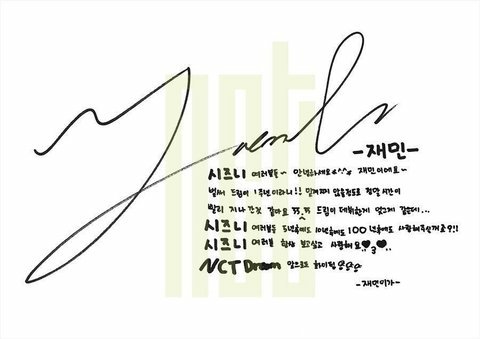 -재민-
시즈니 여러분들~ 안녕하세요^^ 재민이에요~
벌써 드림이 1주년이라니!! 믿겨지지 않을정도로 정말 시간이
빨리 지나간것 같아요 드림이 데뷔한게 엊그제 같은데...
시즈니 여러분들 5년후에도 10년후에도 100년후에도 사랑해주실꺼죠?!
시즈니 여러분 항상 보고싶고 사랑해요♥3♥
NCT Dream 앞으로도 화이팅
-재민이가-
nct